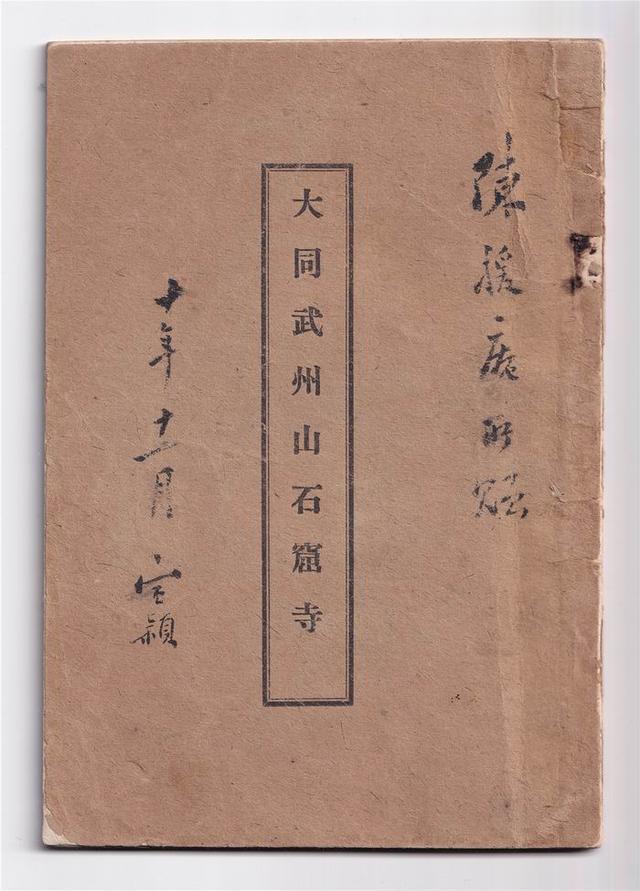 陳援庵所贈
大同武州山石窟寺
十年十一月